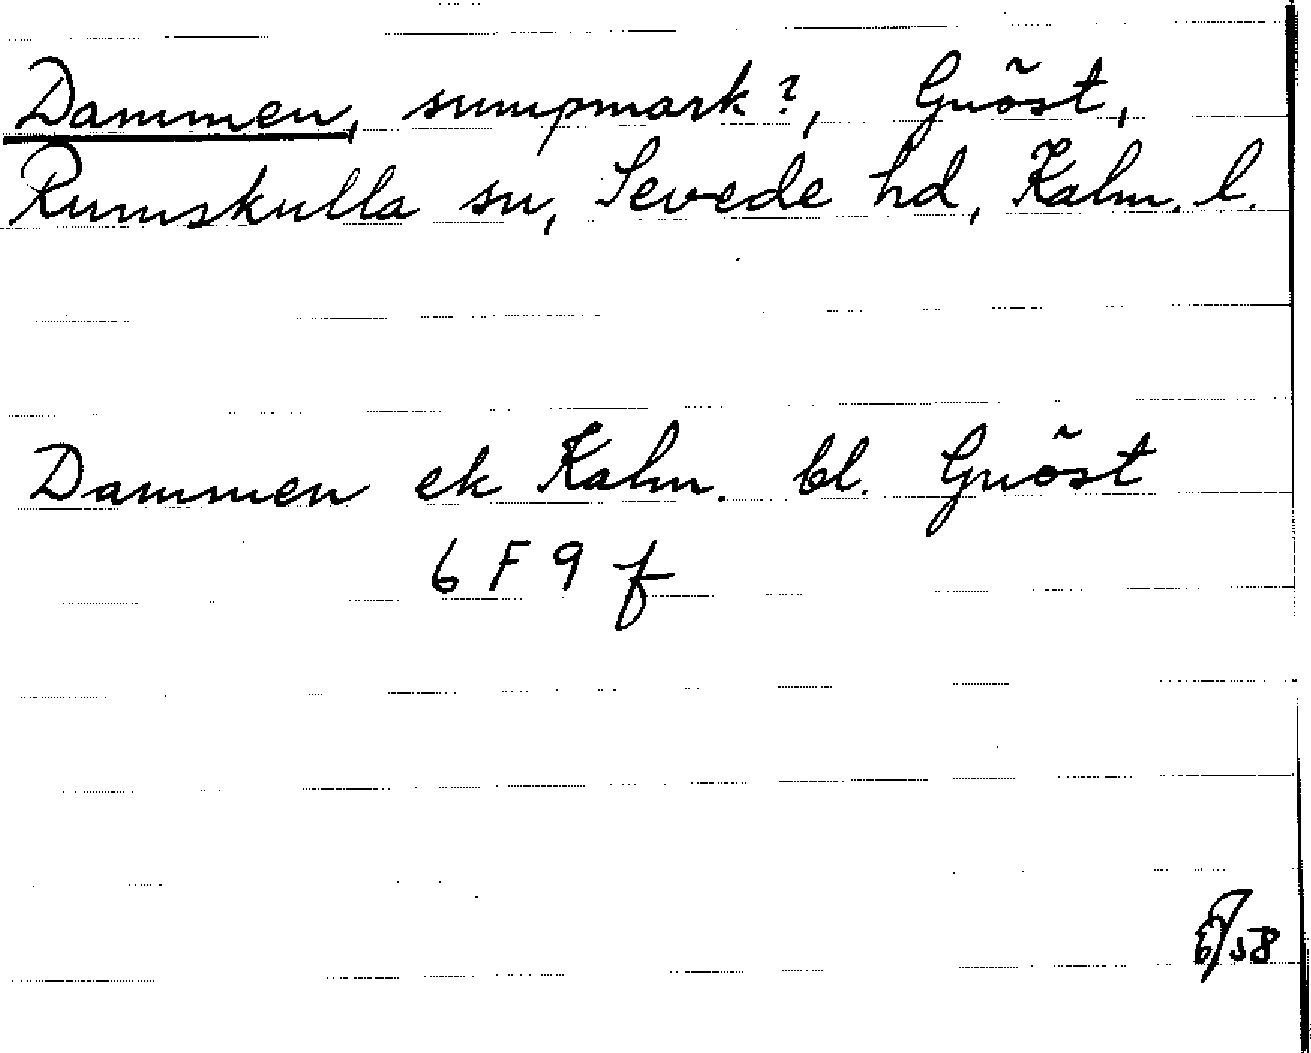 Dammen, sumpmark?, Gnöst,
Rumskulla sn, Sevede hd, Kalm. l.
Dammen ek Kalm. bl. Gnöst
6 F 9 f
58